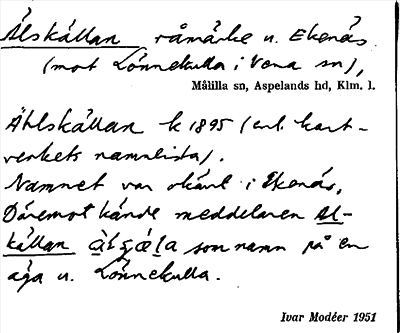 Älskällan råmärke u. Ekenäs
(mot Lönnekulla i Vena sn),
Målilla sn, Aspelands hd, Klm. l.
Ählskällan k 1895 (enl. kart-
verkets namnlista).
Namnet var okänt i Ekenäs,
Däremot kände meddelaren Al-
källan som namn på en
äga u. Lönnekulla.
Ivar Modéer 1951